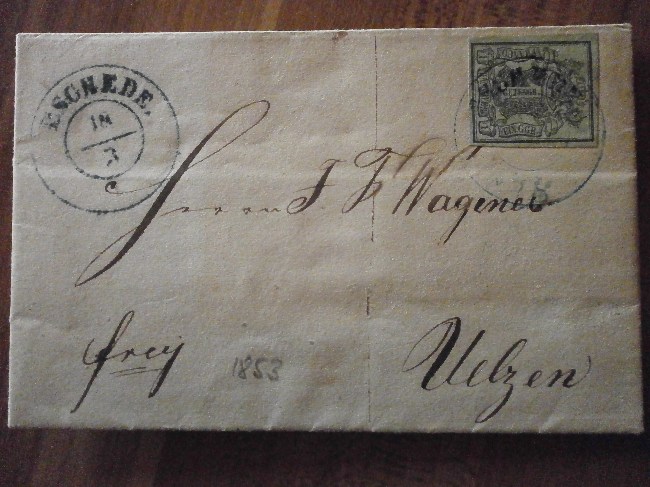 ESCHEDE.
18
3
Herrn J. F. Wagener
frey
1853
Uelzen